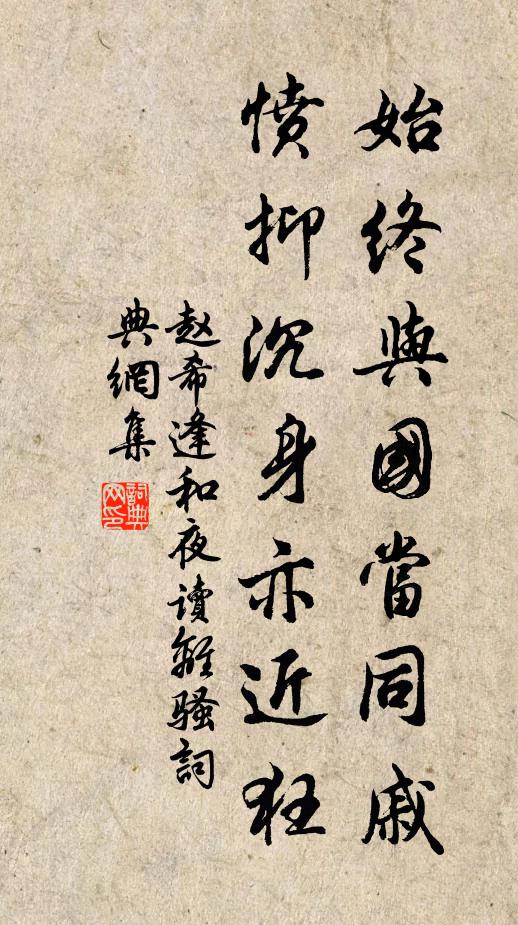 始终與國當同戚
憤抑沉身亦近狂
赵希逢和夜讀離騷詞
典網集
詞典
网印